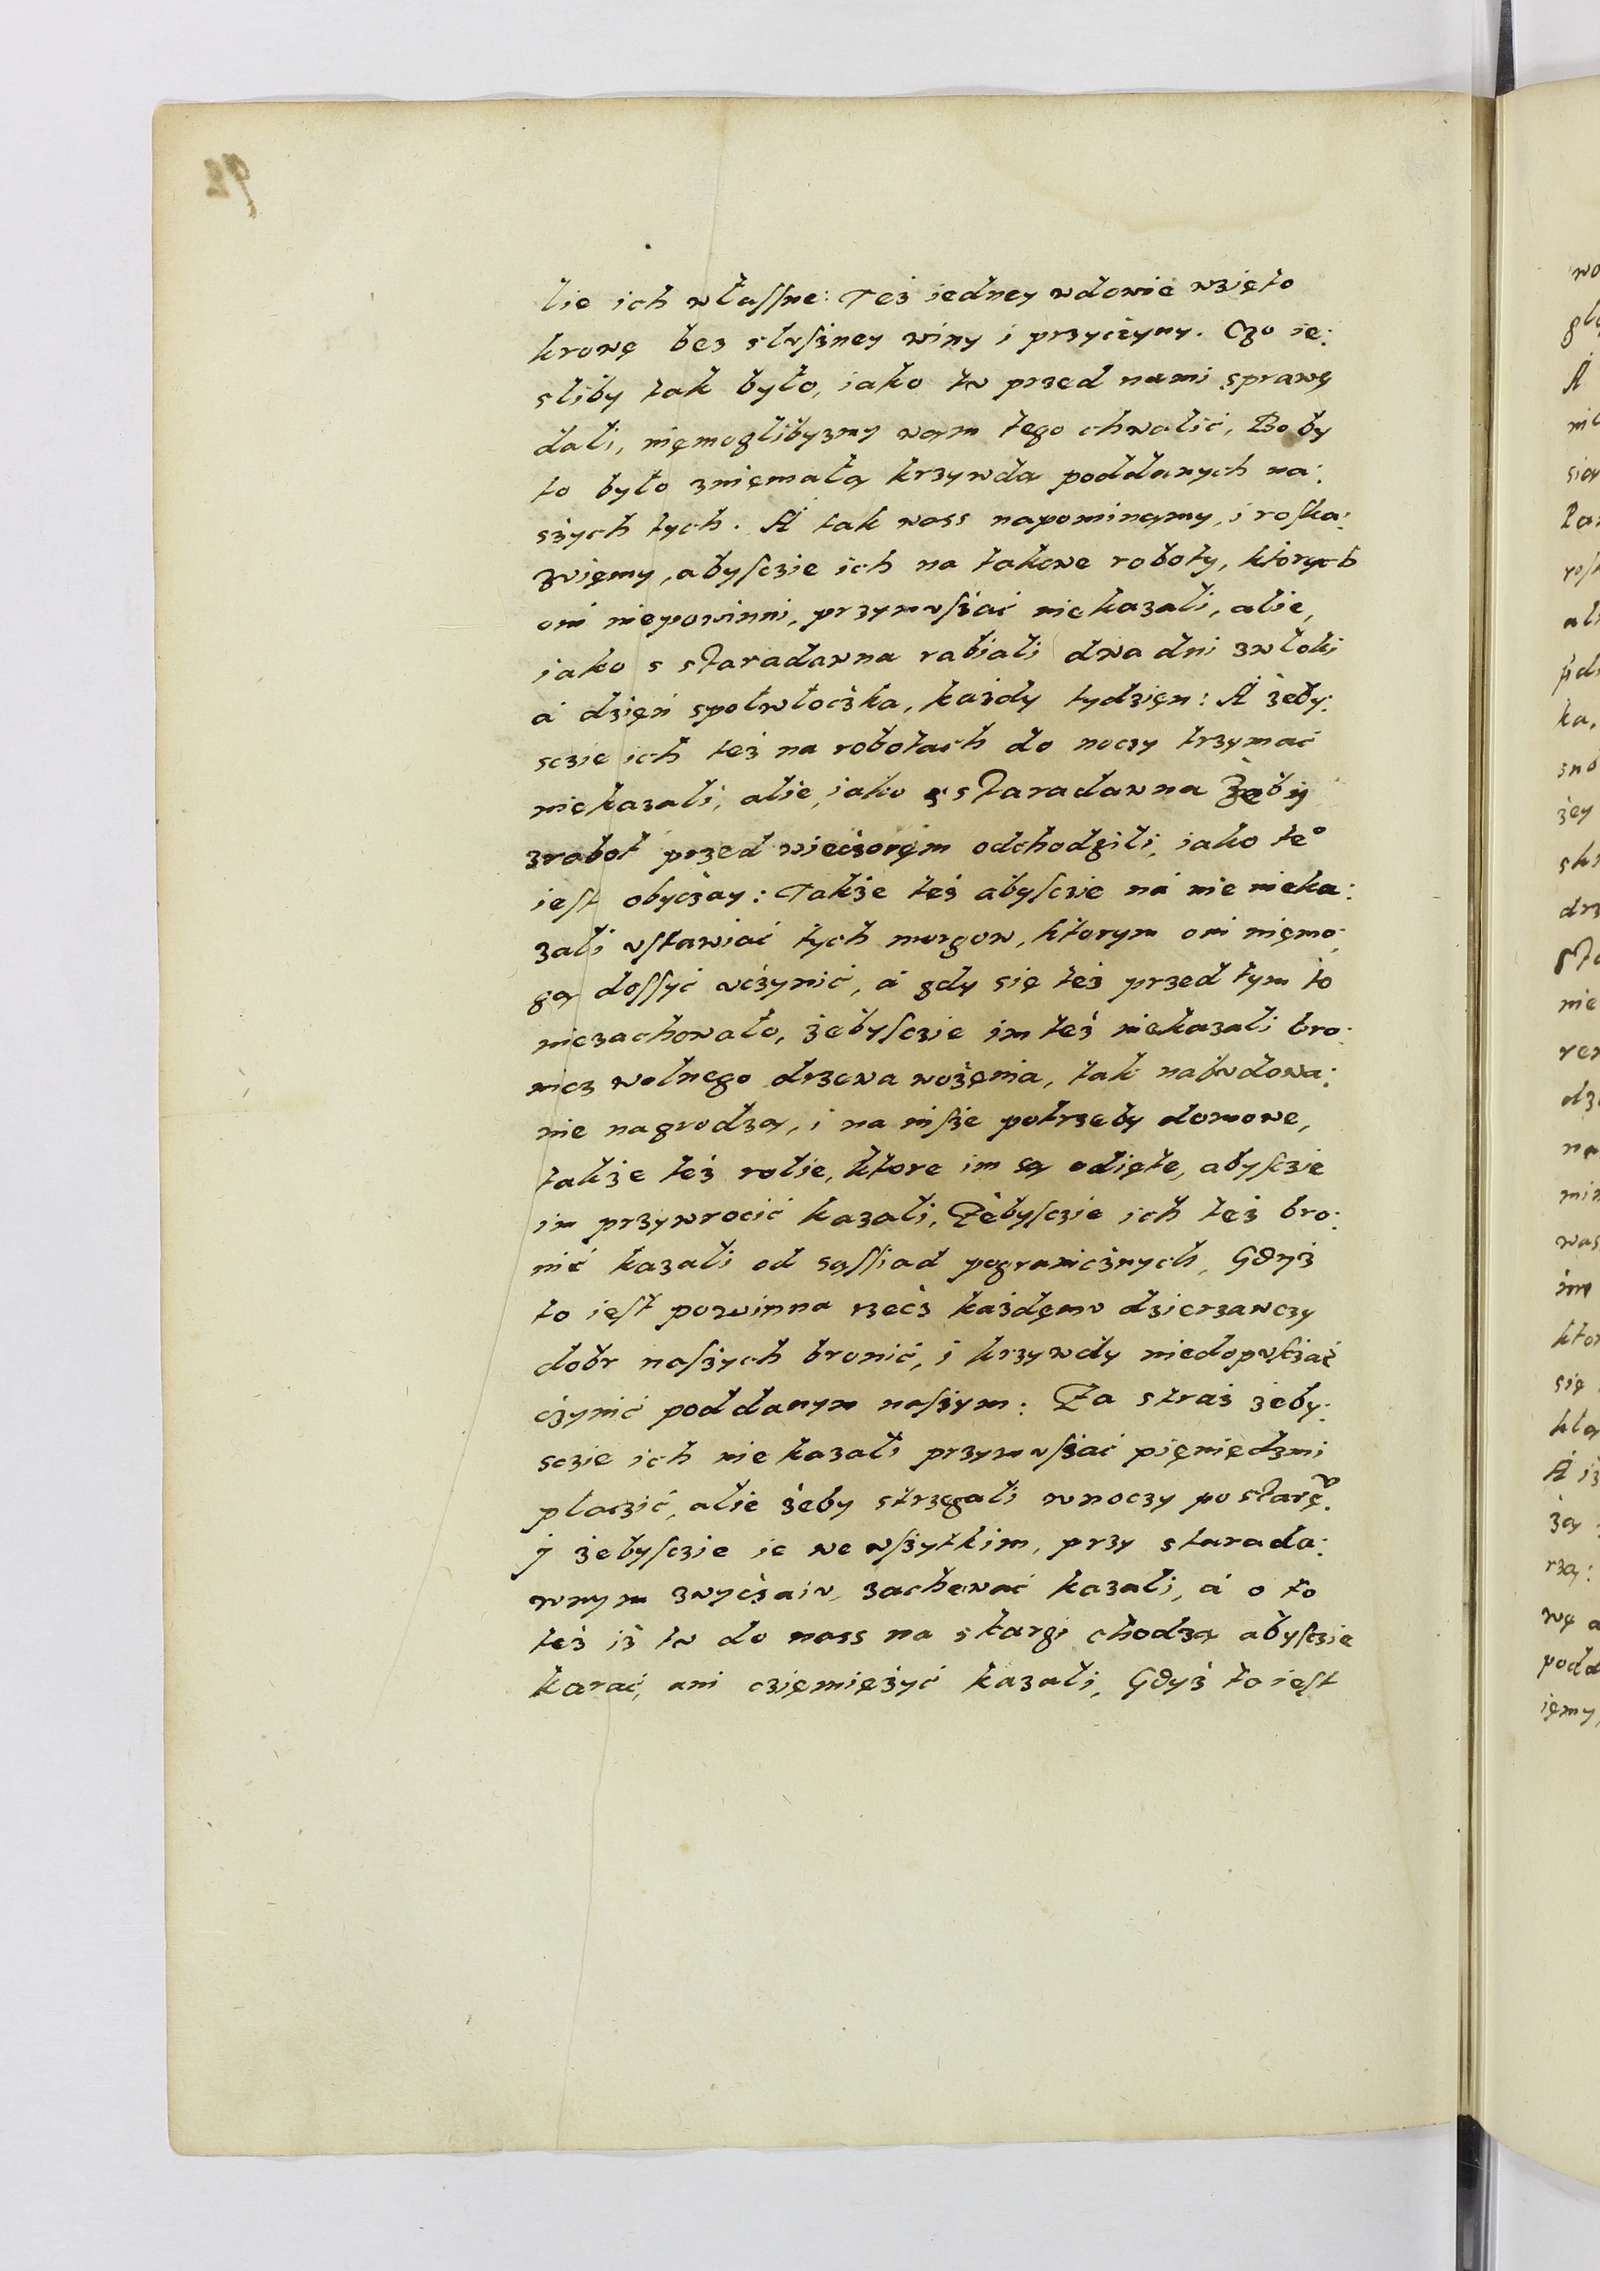 lie ich własſne: Też iedney wdowie wzięto
krowę bez sluſżney winy i przyczyny. Czo ie:
sliby tak było, iako tu przed nami sprawę
dali, nięmoglibyzmy wam tego chwalić, Bo by
to było znięmałą krzywda poddanych na:
szych tych. Á tak wass napominamy, i roſka:
zuięmy, abyſczie ich na takowe roboty, których
oni niepowinni, przymuſżać nie kazali, alie,
iako s staradawna rabiali dwa dni zwłoki
á dzięń społwłoczka, każdy tydzięn: Á żeby:
sczie ich też na robotach do noczy trzymać
niekazali, alie, iako s staradawna żeby
zrobot przed wieczoręm odchodzili, iako te°
ieſt obyczay: Także też abyſczie ná nie nieka:
zali vſtawiać tych morgow, ktorym oni nięmo:
gą doſſyć vczynić, á gdy się też przed tym to
niezachowało, żebyſczie im też niekazali bro:
nicz wolnego drzewa wożęnia, tak nabudowa:
nie nagrodzą, i na inſże potrzeby domowe,
także też rolie, ktore im są odięte, abyſczie
im przywrocić kazali, Żebyſczie ich też bro:
nić kazali od sąſſiad pogranicznych, Gdyż
to ieſt powinna rzecz każdęmu dzierzawczy
dobr naſżych bronić, i krzywdy niedopuſczać
czynić poddanym naſżym: Za straż żeby:
sczie ich nie kazali przymuſżać pięniędzmi
płaczić, alie żeby strzegali wnoczy po starę°.
j żebyſczie ie we wſżytkim, przy starada:
wnym zwyczaiu, zachować kazali, á o to
też iż tu do nass na skargi chodzą abyſczie
karać, ani czięmiężyć kazali, Gdyż to ieſt